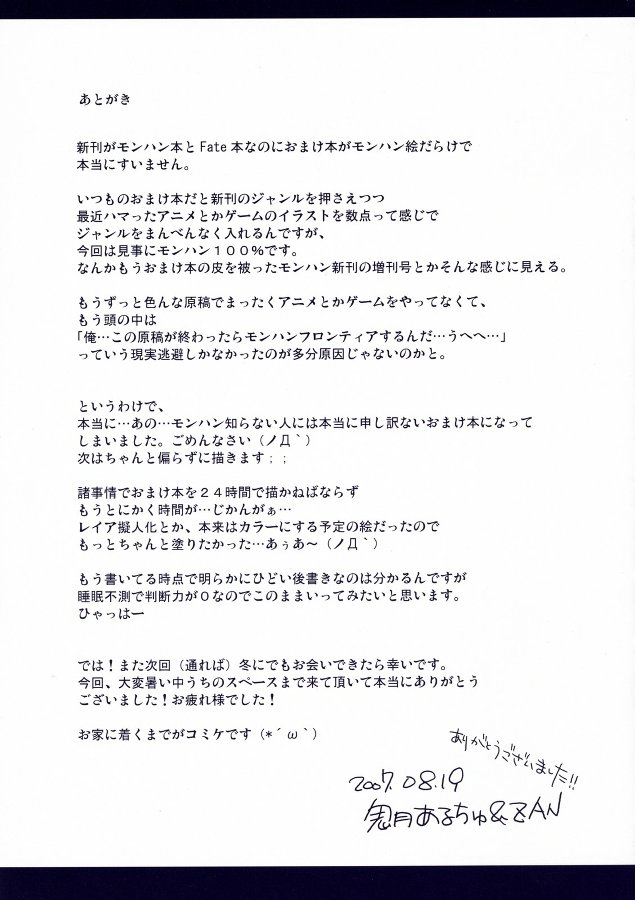 あとがき
新刊がモンハン本とFate本なのにおまけ本がモンハン絵だらけで
本当にすいません。
いつものおまけ本だと新刊のジャンルを押さえつつ
最近ハマったアニメとかゲームのイラストを数点って感じで
ジャンルをまんべんなく入れるんですが、
今回は見事にモンハン１００％です。
なんかもうおまけ本の皮を被ったモンハン新刊の増刊号とかそんな感じに見える。
もうずっと色んな原稿でまったくアニメとかゲームをやってなくて、
もう頭の中は
「俺…この原稿が終わったらモンハンフロンティアするんだ…うへへ…」
っていう現実逃避しかなかったのが多分原因じゃないのかと。
というわけで、
本当に…あの…モンハン知らない人には本当に申し訳ないおまけ本になって
しまいました。ごめんなさい（ノД｀）
次はちゃんと偏らずに描きます；；
諸事情でおまけ本を２４時間で描かねばならず
もうとにかく時間が…じかんがぁ…
レイア擬人化とか、本来はカラーにする予定の絵だったので
もっとちゃんと塗りたかった…あぅあ～（ノД｀）
もう書いてる時点で明らかにひどい後書きなのは分かるんですが
睡眠不測で判断力が０なのでこのままいってみたいと思います。
ひゃっはー
では！また次回（通れば）冬にでもお会いできたら幸いです。
今回、大変暑い中うちのスペースまで来て頂いて本当にありがとう
ございました！お疲れ様でした！
お家に着くまでがコミケです（*´ω｀）
ありがとうございました!!
2007.08.19
月あるちゅ&ZAN